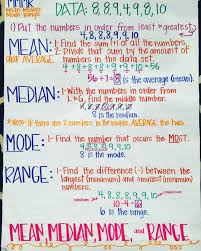 MMMR
Mean·Median
Mode·Range
DATA: 8,8,9,4,9,8,10
1) Put the numbers in order from least → greatest.
4,8,8,8,9,9,10
MEAN:
AKA AVERAGE
1-Find the sum (+) of all the numbers.
2-Divide that sum by the amount of
numbers in the data set.
4+8+8+8+9+9+10=56
56÷7=8
8 is the average (mean).
MEDIAN:
1-With the numbers in order from
L→G, find the middle number.
4,8,8,8,9,9,10
8 is the median.
*Note: If there are 2 numbers in the middle, AVERAGE the two.
MODE:
1-Find the number that occurs the MOST.
4,8,8,8,9,9,10
8 is the mode.
RANGE:
1-Find the difference (-) between the
largest (maximum) and smallest (minimum)
numbers.
minimum
4,8,8,8,9,9,10
maximum
10-4=6
6 is the range.
MEAN, MEDIAN, MODE, and RANGE